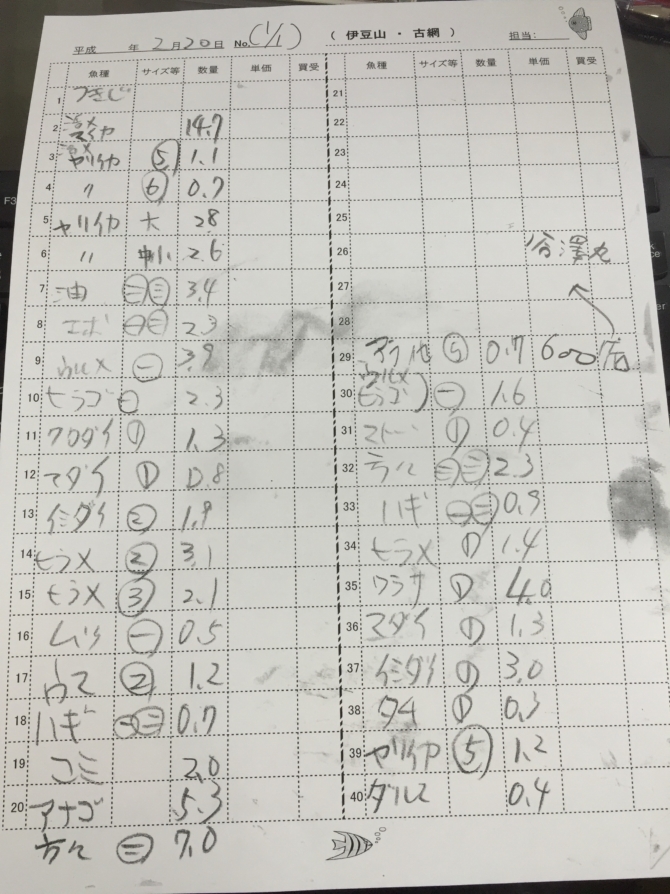 平成 年 2月20日 No.(1/1) ( 伊豆山 ・ 古網 ) 担当:
魚種 サイズ等 数量 単価 買受
1 つきじ
2 活〆 マイカ 14.7
3 活〆 ヤリイカ ⑤ 1.1
4 〃 ⑥ 0.7
5 ヤリイカ 大 28
6 〃 中小 2.6
7 油 ㊁㊂ 3.4
8 エボ ㊀㊂ 2.3
9 ウルメ ㊀ 3.9
10 ヒラゴ ㊀ 2.3
11 クロダイ ① 1.3
12 マダイ ① 0.8
13 イシダイ ② 1.9
14 ヒラメ ② 3.1
15 ヒラメ ③ 2.1
16 ムツ ㊀ 0.5
17 ウマ ② 1.2
18 ハギ ㊀㊁ 0.7
19 ゴミ 2.0
20 アナゴ 5.3
㊂ 7.0
魚種 サイズ等 数量 単価 買受
21
22
23
24
25
26 谷澤丸
27
28
29 ⑤ 0.7 600
30 ウルメ ヒラゴ ㊀ 1.6
31 マトー ① 0.4
32 ㊁㊂ 2.3
33 ハギ ㊀㊁ 0.9
34 ヒラメ ① 1.4
35 ワラサ ① 4.0
36 マダイ ① 1.3
37 イシダイ ① 3.0
38 タイ ① 0.3
39 ヤリイカ ⑤ 1.2
40 ダルマ 0.4